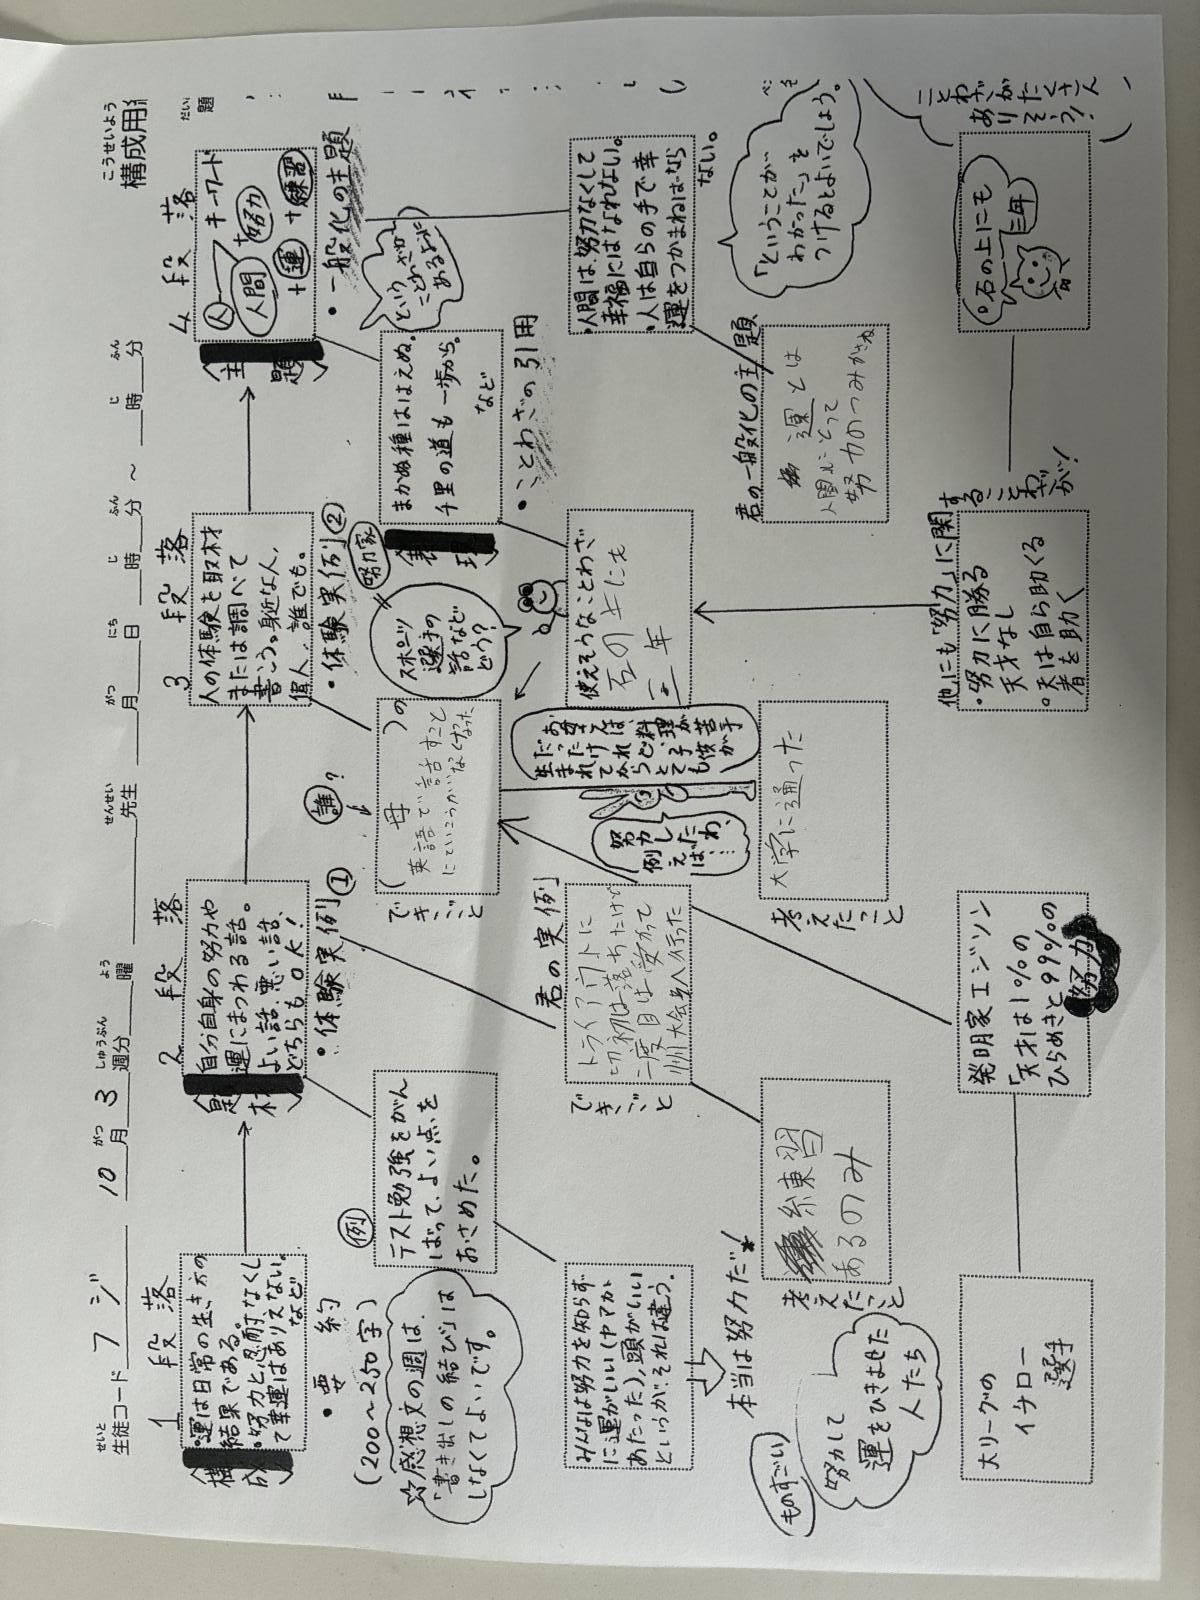 構成用
こうせいよう
題
だい
生徒コード フジ 10月3週分 曜 先生 月 日 時 分 〜 時 分
せいと
がつ しゅうぶん よう せんせい がつ にち じ ふん じ ふん
1 段落
構成
・運は日常の生き方の
結果である。
・努力と忍耐なくし
て幸運はありえない。
など
・要約
(200〜250字)
☆感想文の週は、
「書き出しの結び」は
しなくてよいです。
2 段落
題材
自分自身の努力や
運にまつわる話。
よい話、悪い話、
どちらもOK!
・体験実例①
例
テスト勉強をがん
ばって、よい点を
おさめた。
みんなは努力を知らず
に運がいい(ヤマがか
あたった)、頭がいい
というが、それは違う。
本当は努力だ!
君の実例
できごと
トライアウトに
初は落ちたけど
二度目は受かって
州大会へ行った
考えたこと
練習
あるのみ
3 段落
人の体験を取材
または調べて
書こう。身近な人、
偉人、誰でも。
・体験実例②
努力家
スポーツ
選手の
話など
どう?
誰?
( 母 )の
できごと
英語で話すこと
にていこうがなくなった
お母さんは、
料理が苦手
だったけれど、子供が
生まれてからとても
努力し
たわ。
例えば…
考えたこと
大学に通った
表現
4 段落
主題
キーワード
人
人間
+努力
+運
+練習
・一般化の主題
ということわざが
あるように
まかぬ種ははえぬ。
千里の道も一歩から。
など
・ことわざの引用
使えそうなことわざ
石の上にも
三年
・人間は努力なくして
幸福にはなれない。
・人は自らの手で幸
運をつかまねばなら
ない。
「ということが
わかった」を
つけるとよいでしょう。
君の一般化の主題
運とは
人間にとって
努力のつみかさね
ものすごい
努力して
運をひきよせた
人たち
大リーグの
イチロー
選手
発明家エジソン
「天才は1%の
ひらめきと99%の
努力」
他にも「努力」に関することわざが!
・努力に勝る
天才なし
・天は自ら助くる
者を助く
・石の上にも
三年
ことわざがたくさん
ありそう!